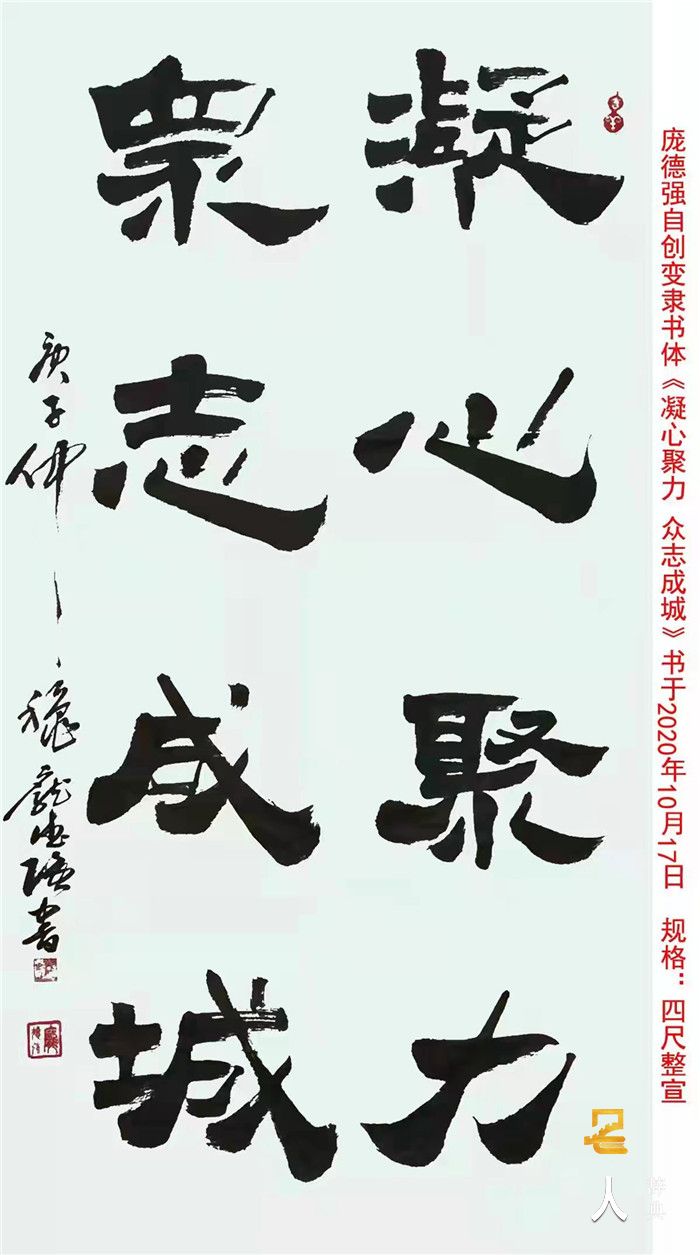 凝心聚力
眾志成城
庚子仲秋龐德強書
庞德强自创变隶书体《凝心聚力 众志成城》书于2020年10月17日 规格：四尺整宣
名人
辞典